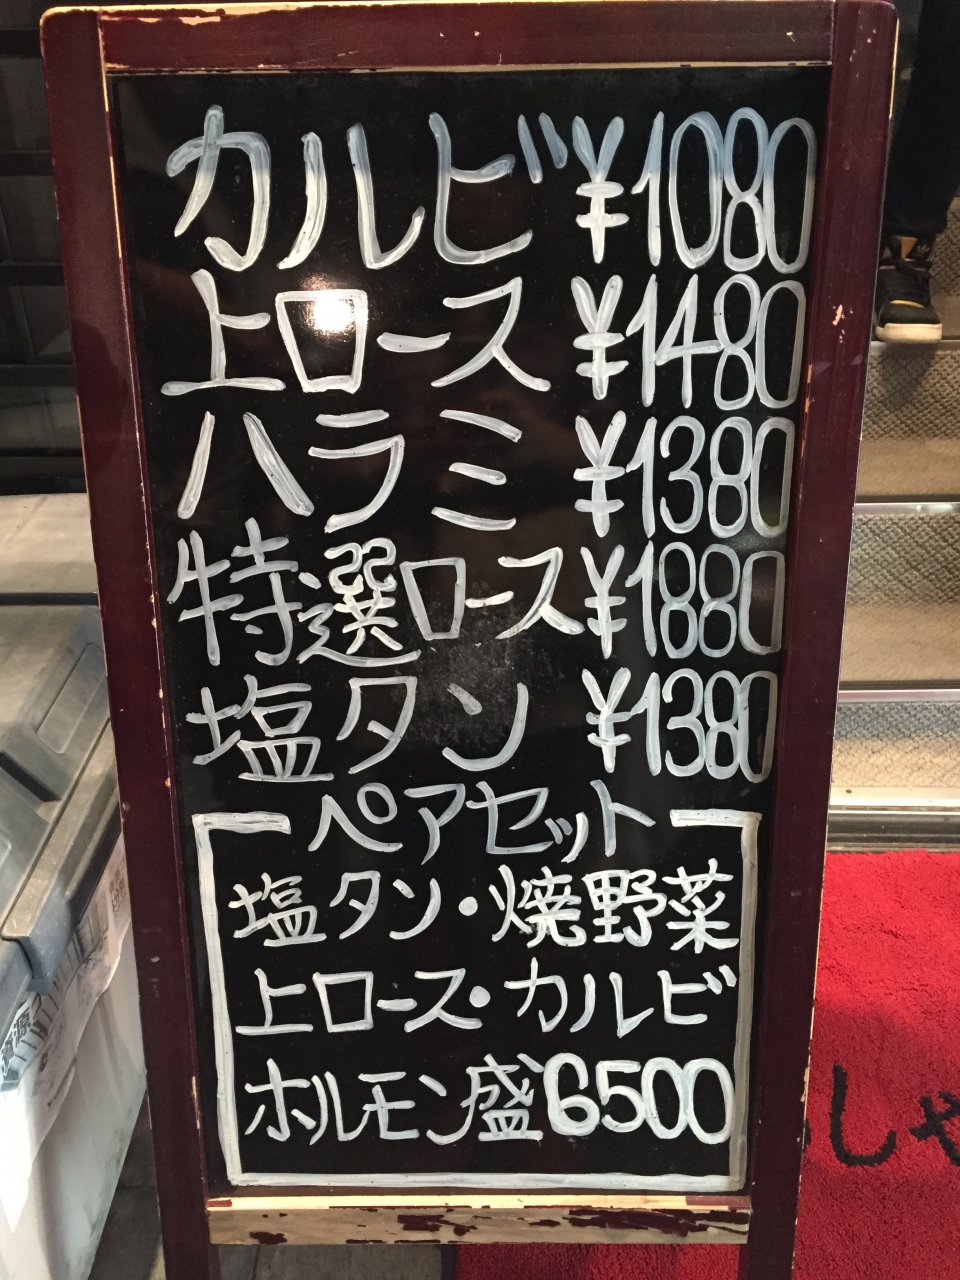 カルビ ¥1080
上ロース ¥1480
ハラミ ¥1380
特選ロース ¥1880
塩タン ¥1380
ペアセット
塩タン・焼野菜
上ロース・カルビ
ホルモン盛 6500
資源
しゃ